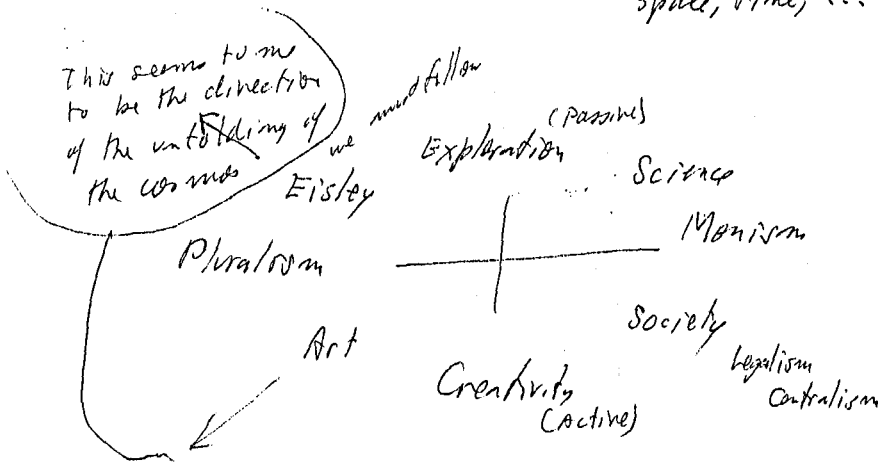 Space, Time, ...
This seems to me
to be the direction
of the unfolding of
the cosmos
we must follow
Eisley
Exploration
(Passive)
Science
Pluralism
Monism
Art
Society
Legalism
Centralism
Creativity
(Active)